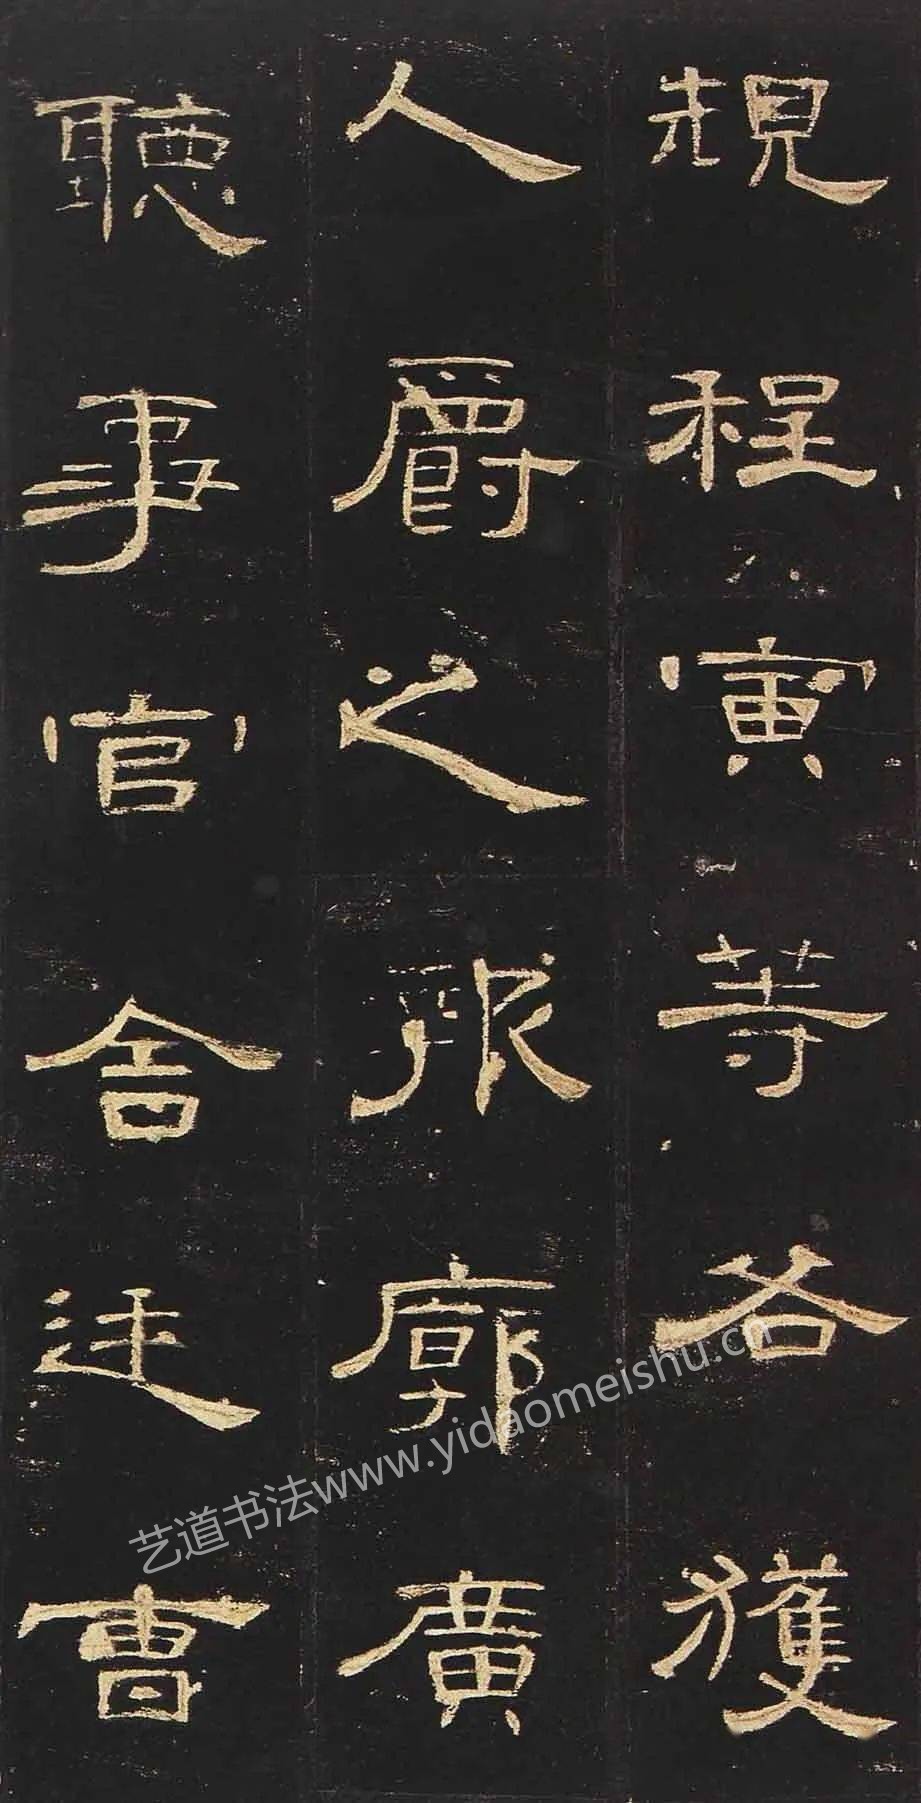 規程寅等各獲
人爵之報廓廣
聽事官舍廷曹
艺道书法www.yidaomeishu.cn